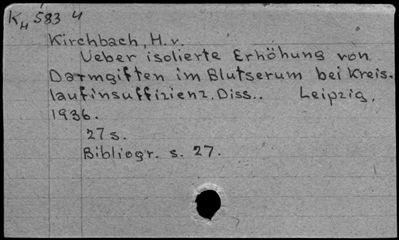 K₄ 583 4
Kirchbach, H. v.
Ueber isolierte Erhöhung von
Darmgiften im Blutserum bei Kreis-
laufinsuffizienz. Diss.. Leipzig,
1936.
27 s.
Bibliogr. s. 27.